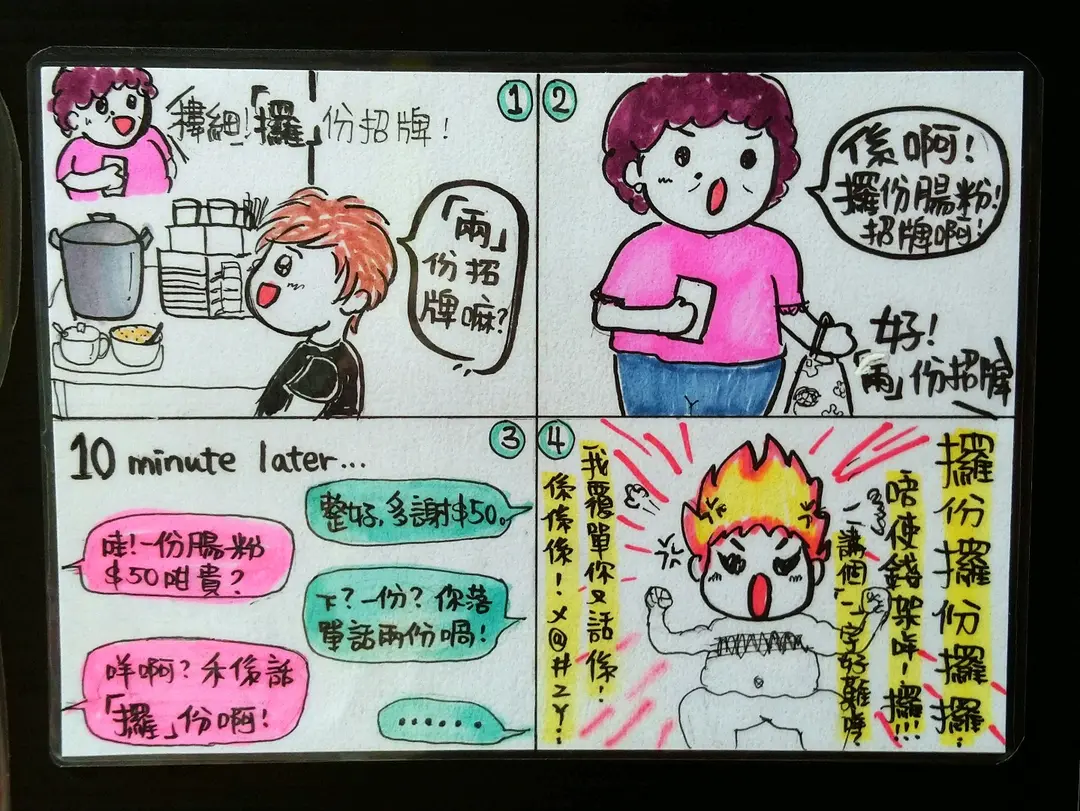 ①
細!「攞」份招牌!
「兩」
份招
牌嘛?
②
係啊!
攞份腸粉!
招牌啊!
好!
「兩」份招牌
③
10 minute later...
整好,多謝$50。
哇!一份腸粉
$50咁貴?
下?一份?你落
單話兩份喎!
咩啊?禾係話
「攞」份啊!
......
④
攞份攞份攞攞!
唔使錢架咩!攞!!!
講個「一」字好難咩!
我覆單你又話係!
係係係!X@#ZY!